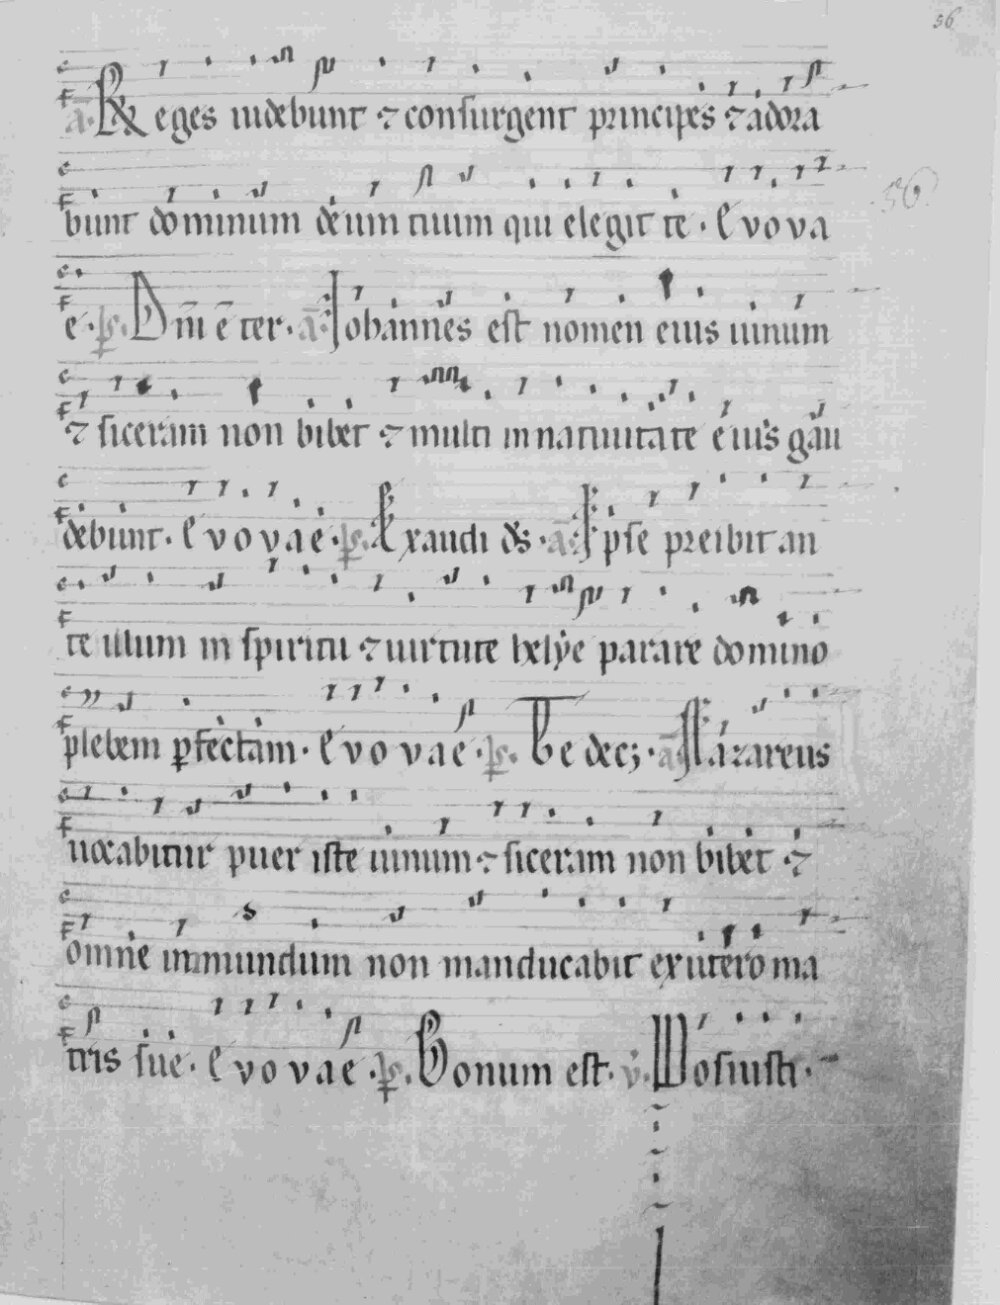 56
a. Reges uidebunt ⁊ consurgent principes ⁊ adora
bunt dominum deum tuum qui elegit te. E v o v a
56
e. ps. Dm̄ ē ter. a. Iohannes est nomen eius uinum
⁊ siceram non bibet ⁊ multi in natiuitate eius gau
debunt. E v o v a e. ps. Exaudi ds. a. Ipse preibit an
te illum in spiritu ⁊ uirtute helye parare domino
plebem ꝑfectam. E v o v a e. ps. Te decꝫ. a. Nazareus
uocabitur puer iste uinum ⁊ siceram non bibet ⁊
omne inmundum non manducabit ex utero ma
tris sue. E v o v a e. ps. Bonum est. v. Posuisti.